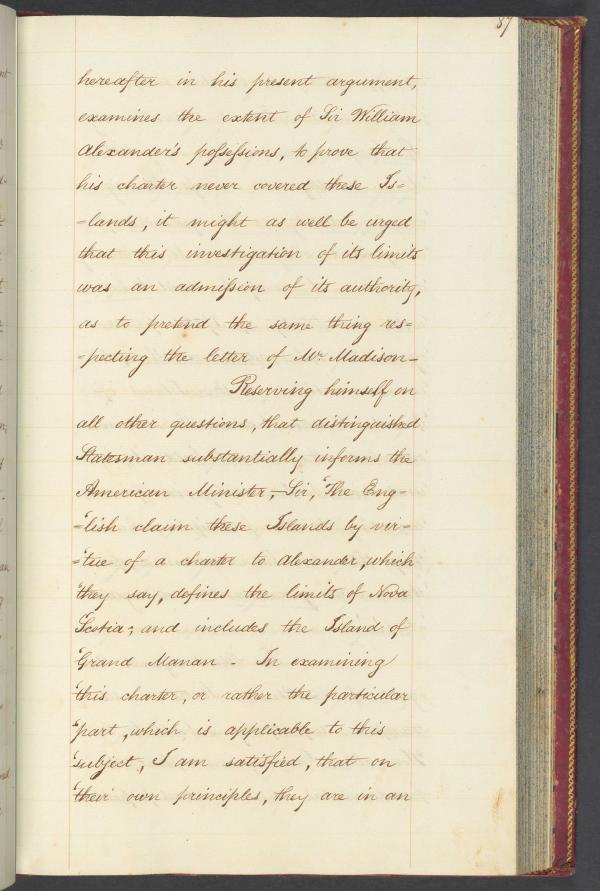 87
hereafter in his present argument,
examines the extent of Sir William
Alexander's poſseſsions, to prove that
his charter never covered these Is=
=lands, it might as well be urged
that this investigation of its limits
was an admiſsion of its authority,
as to pretend the same thing res=
=pecting the letter of Mr. Madison—
Reserving himself on
all other questions, that distinguished
Statesman substantially informs the
American Minister,—Sir, "The Eng=
="lish claim these Islands by vir=
="tue of a charter to Alexander, which
"they say, defines the limits of Nova
"Scotia; and includes the Island of
"Grand Manan - In examining
"this charter, or rather the particular
"part, which is applicable to this
"subject, I am satisfied, that on
"their own principles, they are in an